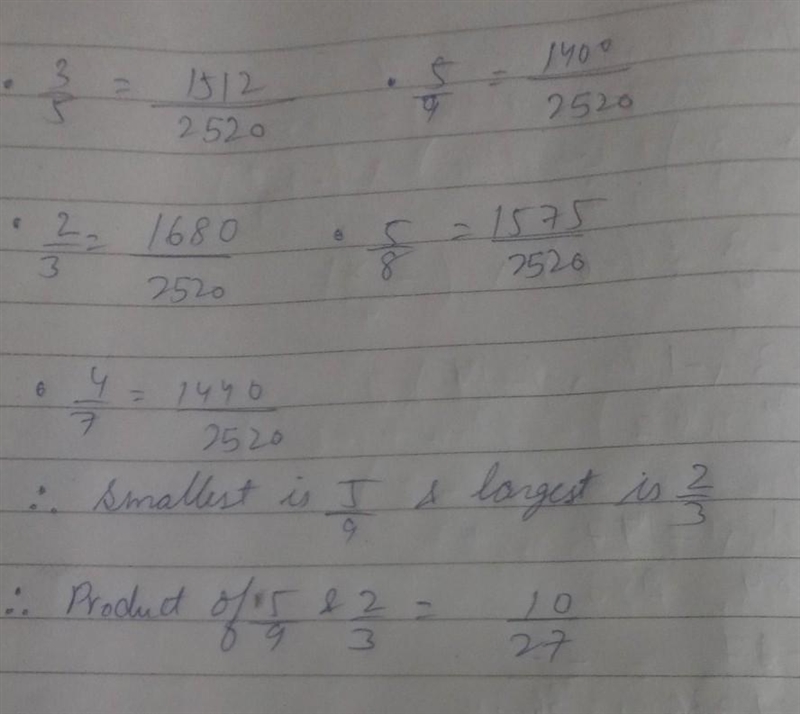 • 3/5 = 1512/2520 • 5/9 = 1400/2520
• 2/3 = 1680/2520 • 5/8 = 1575/2520
• 4/7 = 1440/2520
∴ Smallest is 5/9 & largest is 2/3
∴ Product of 5/9 & 2/3 = 10/27